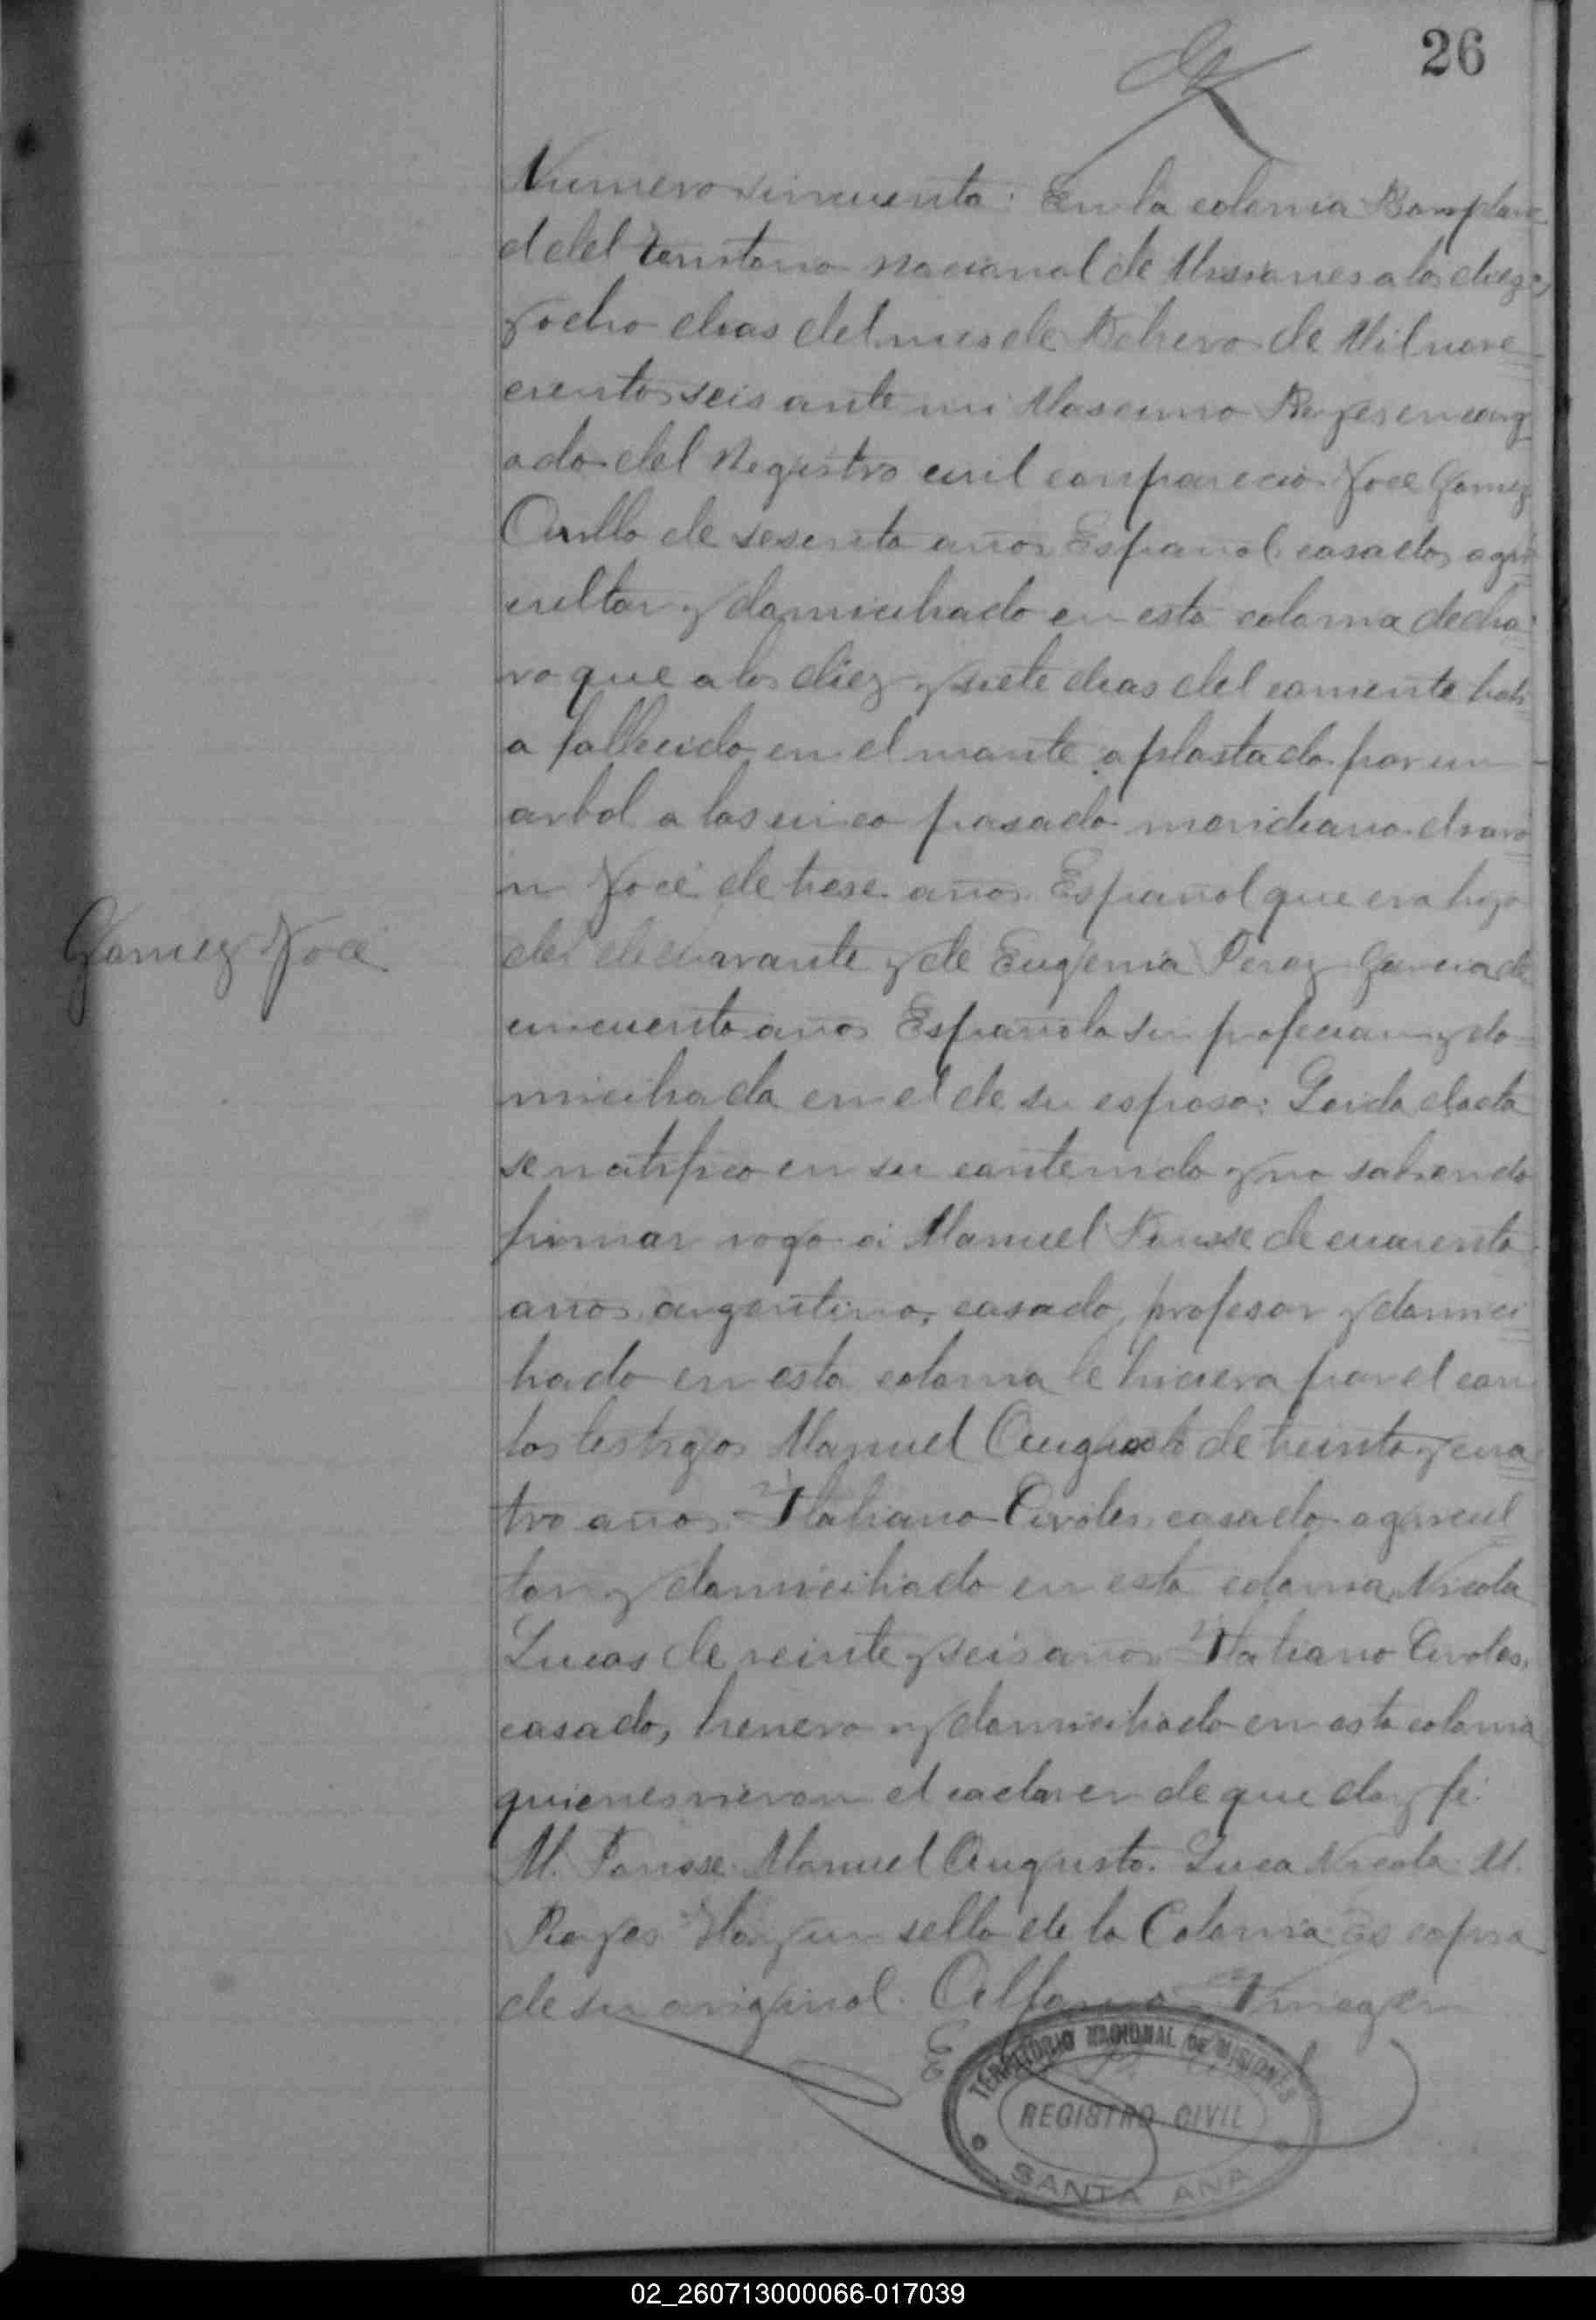 26
Numero sincuenta: En la colonia Bonplan
d del Territorio Nacional de Misiones a los diez
y ocho dias del mes de Febrero de Mil nove
cientos seis ante mi Mascimo Reyes encarg
ado del Registro civil comparecio Jose Gomez
de sesenta años Español casado, agri
cultor y domiciliado en esta colonia decla
ro que a los diez y siete dias del corriente habi
a fallecido en el monte aplastado por un
arbol a las cinco pasado meridiano el varo
n José de trese años Español que era hijo
del declarante y de Eugenia Perez Garcia de
cincuenta años Española sin profecion y do
miciliada en el de su esposo: Leida el acta
se ratifico en su contenido y no sabiendo
firmar rogo a Manuel de cuarenta
años, argentino, casado, profesor y domici
liado en esta colonia le hiciera por el con
los testigos Manuel Augusto de treinta y cua
tro años Italiano casado agricul
tor y domiciliado en esta colonia, Nicola
Lucas de veinte y seis años Italiano
casado, herrero y domiciliado en esta colonia
quienes vieron el cadaver de que doy fé.
M. Manuel Augusto. Luca Nicola M.
Reyes Hay un sello de la Colonia Es copia
de su original.
Gomez José
TERRITORIO NACIONAL DE MISIONES
REGISTRO CIVIL
SANTA ANA
02_260713000066-017039